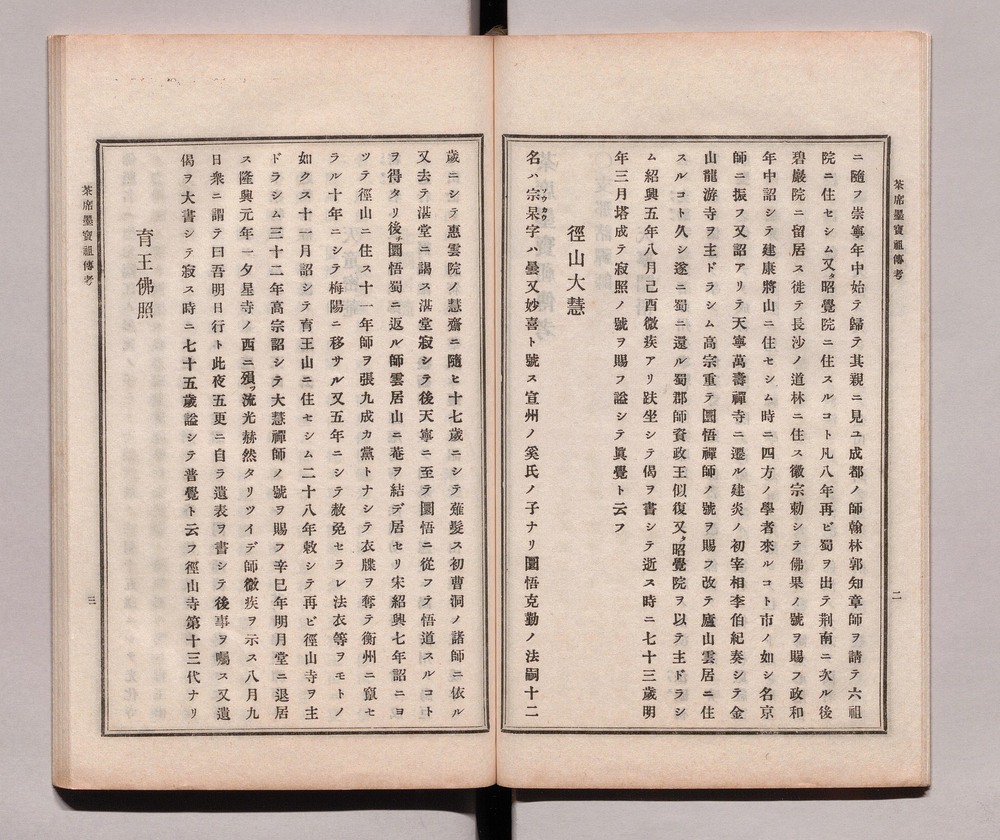 茶席墨寳祖傳考
二
ニ隨フ崇寧年中始テ歸テ其親ニ見ユ成都ノ師翰林郭知章師ヲ請テ六祖
院ニ住セシム又タ昭覺院ニ住スルコト凡八年再ビ蜀ヲ出テ荆南ニ次ル後
碧巖院ニ留居ス徒テ長沙ノ道林ニ住ス徽宗勅シテ佛果ノ號ヲ賜フ政和
年中詔シテ建康將山ニ住セシム時ニ四方ノ學者來ルコト市ノ如シ名京
師ニ振フ又詔アリテ天寧萬壽禪寺ニ遷ル建炎ノ初宰相李伯紀奏シテ金
山龍游寺ヲ主ドラシム高宗重テ圜悟禪師ノ號ヲ賜フ改テ廬山雲居ニ住
スルコト久シ遂ニ蜀ニ還ル蜀郡師資政王似復又タ昭覺院ヲ以テ主ドラシ
ム紹興五年八月己酉微疾アリ趺坐シテ偈ヲ書シテ逝ス時ニ七十三歲明
年三月塔成テ寂照ノ號ヲ賜フ謚シテ眞覺ト云フ
徑山大慧
名ハ宗杲ソウカウ字ハ曇又妙喜ト號ス宣州ノ奚氏ノ子ナリ圜悟克勤ノ法嗣十二
歲ニシテ惠雲院ノ慧齋ニ隨ヒ十七歲ニシテ薙髮ス初曹洞ノ諸師ニ依ル
又去テ湛堂ニ謁ス湛堂寂シテ後天寧ニ至テ圜悟ニ從フテ悟道スルコト
ヲ得タリ後チ圜悟蜀ニ返ル師雲居山ニ菴ヲ結デ居セリ宋紹興七年詔ニヨ
ツテ徑山ニ住ス十一年師ヲ張九成カ黨トナシテ衣牒ヲ奪テ衡州ニ竄セ
ラル十年ニシテ梅陽ニ移サル又五年ニシテ赦免セラレ法衣等ヲモトノ
如クス十一月詔シテ育王山ニ住セシム二十八年敕シテ再ビ徑山寺ヲ主
ドラシム三十二年高宗詔シテ大慧禪師ノ號ヲ賜フ辛巳年明月堂ニ退居
ス隆興元年一夕星寺ノ西ニ殞ツ流光赫然タリツイデ師微疾ヲ示ス八月九
日衆ニ謂テ曰吾明日行ト此夜五更ニ自ラ遺表ヲ書シテ後事ヲ囑ス又遺
偈ヲ大書シテ寂ス時ニ七十五歲謚シテ普覺ト云フ徑山寺第十三代ナリ
育王佛照
茶席墨寳祖傳考
三